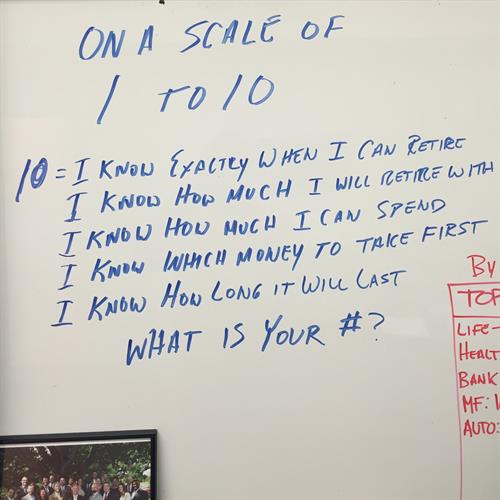 ON A SCALE OF
1 TO 10
10 = I KNOW EXACTLY WHEN I CAN RETIRE
I KNOW HOW MUCH I WILL RETIRE WITH
I KNOW HOW MUCH I CAN SPEND
I KNOW WHICH MONEY TO TAKE FIRST
I KNOW HOW LONG IT WILL LAST
WHAT IS YOUR #?
BY
TOP
LIFE-
HEALT
BANK
MF:
AUTO: